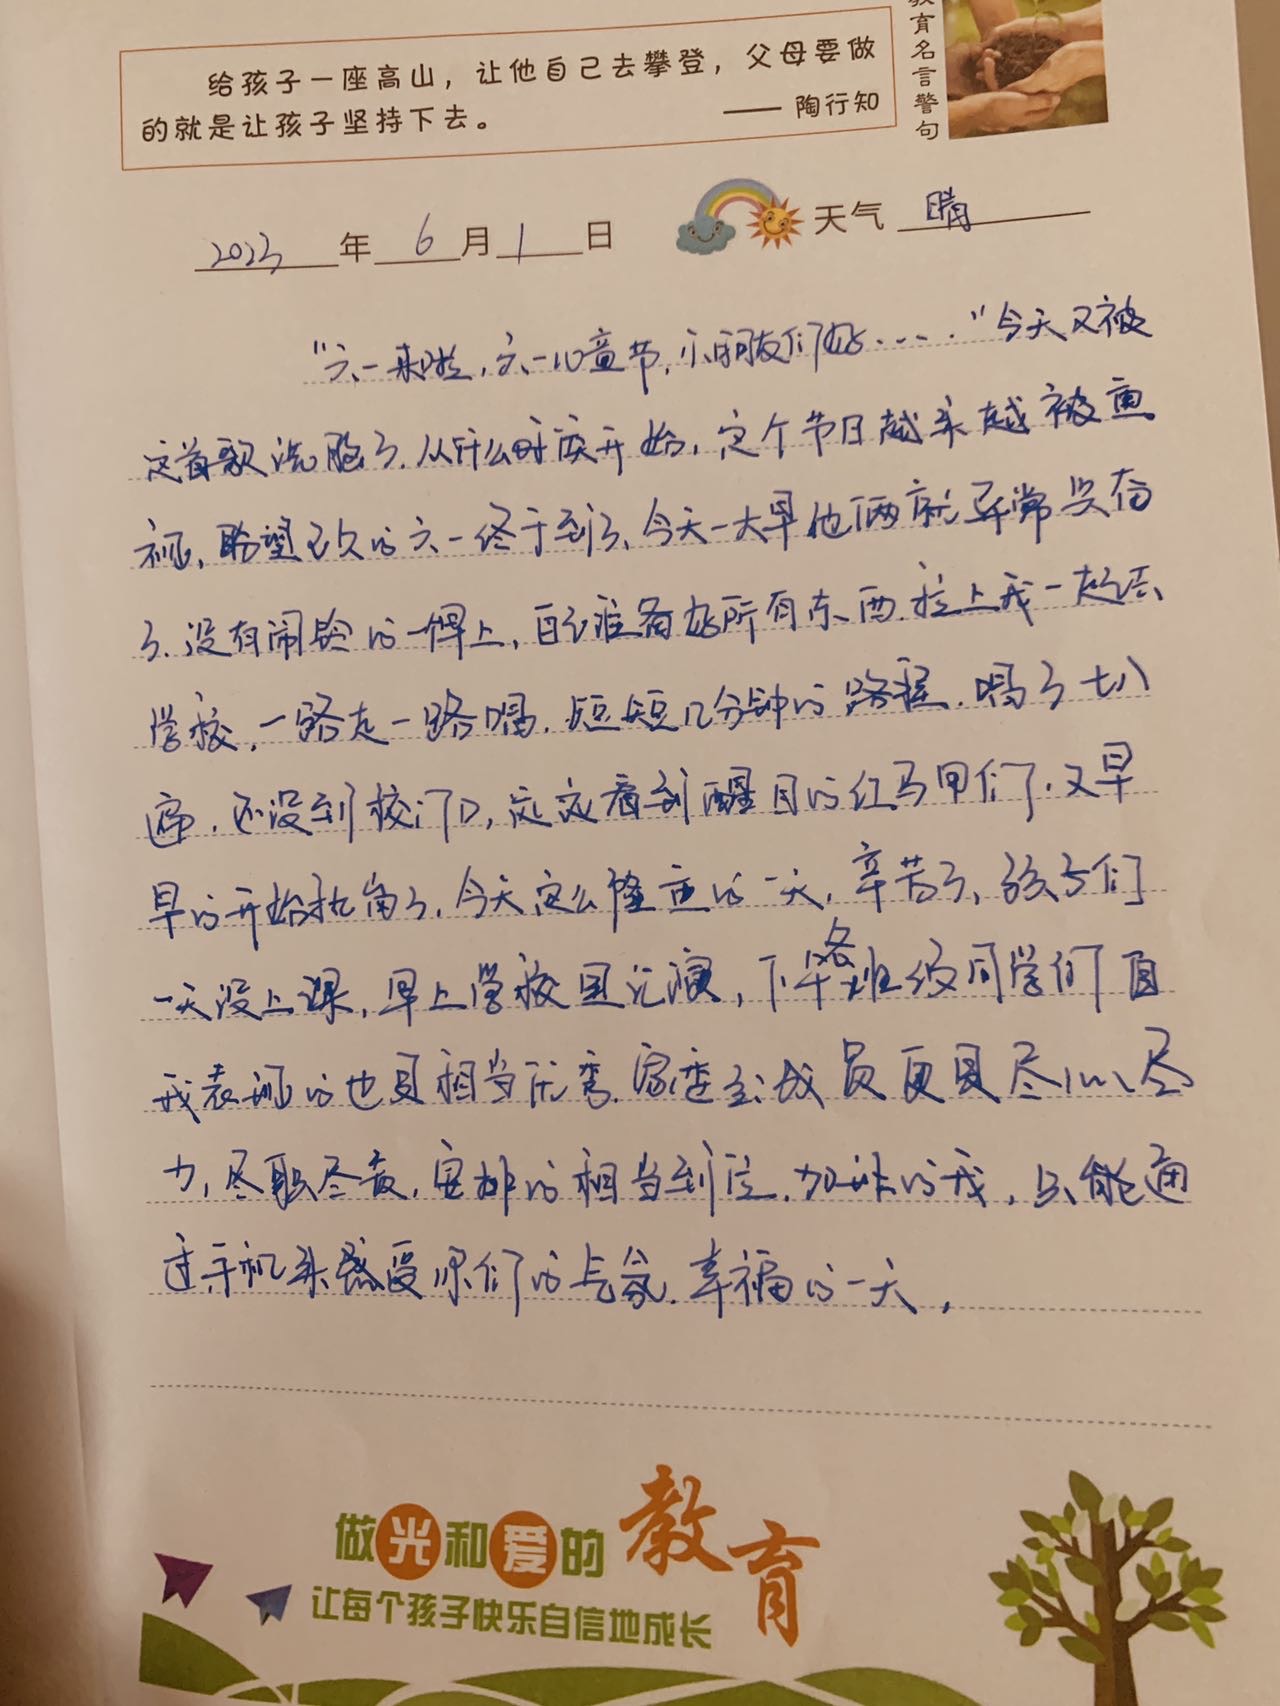 给孩子一座高山，让他自己去攀登，父母要做
的就是让孩子坚持下去。
—— 陶行知
教育名言警句
2023年6月1日 天气 晴
"六一来啦，六一儿童节，小朋友们好....."今天又被
这首歌洗脑了.从什么时候开始，这个节日越来越被重
视，盼望已久的六一终于到了、今天一大早他俩就异常兴奋
了.没有闹铃的一早上，自己准备好所有东西.拉上我一起去
学校，一路走一路唱.短短几分钟的路程.唱了七八
遍.还没到校门口，远远看到醒目的红马甲们.又早
早的开始执岗了.今天这么隆重的一天，辛苦了，孩子们
一天没上课，早上学校里汇演，下午各班级同学们自
我表现的也是相当优秀.家委会成员更是尽心尽
力，尽职尽责，安排的相当到位.加班的我，只能通
过手机来感受你们的气氛.幸福的一天，
做光和爱的教育
让每个孩子快乐自信地成长